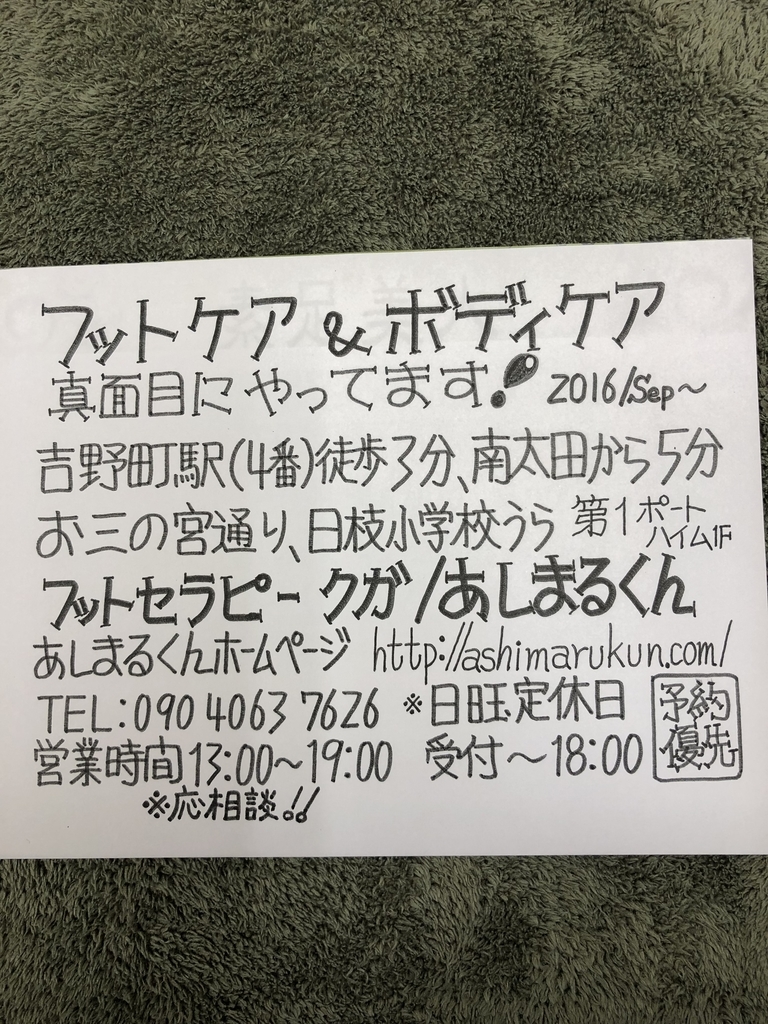 フットケア & ボディケア
真面目にやってます! 2016/Sep〜
吉野町駅(4番)徒歩3分、南太田から5分
お三の宮通り、日枝小学校うら 第1ポートハイム1F
フットセラピー クガ/あしまるくん
あしまるくんホームページ http://ashimarukun.com/
TEL:090 4063 7626 ※日旺定休日
営業時間13:00〜19:00 受付〜18:00
予約優先
※応相談!!